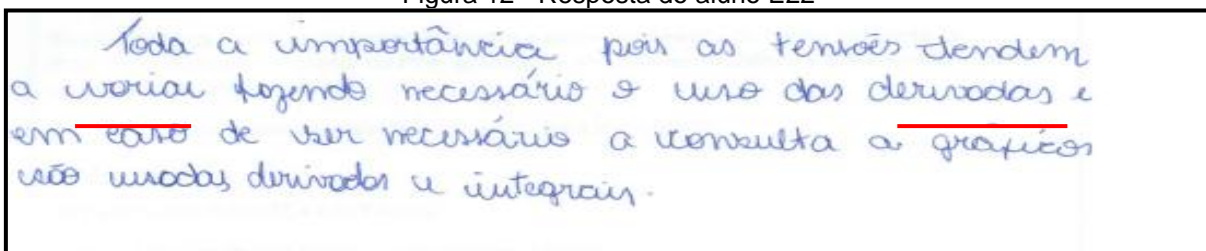 Figura 12 - Resposta do aluno E22
Toda a importância pois as tensões tendem
a variar fazendo necessário o uso das derivadas e
em caso de ser necessário a consulta a gráficos
são usadas derivadas e integrais.